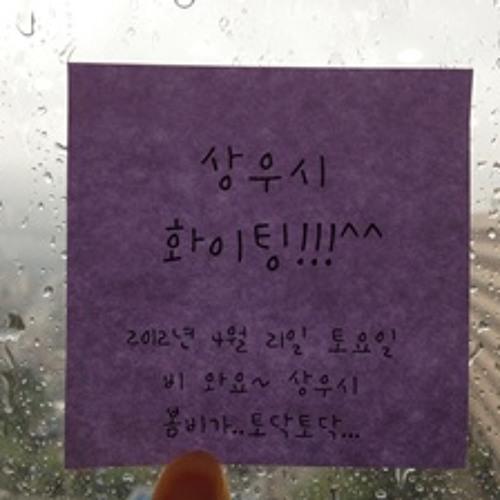 상우시
화이팅!!!^^
2012년 4월 21일 토요일
비 와요~ 상우시
봄비가..토닥토닥...